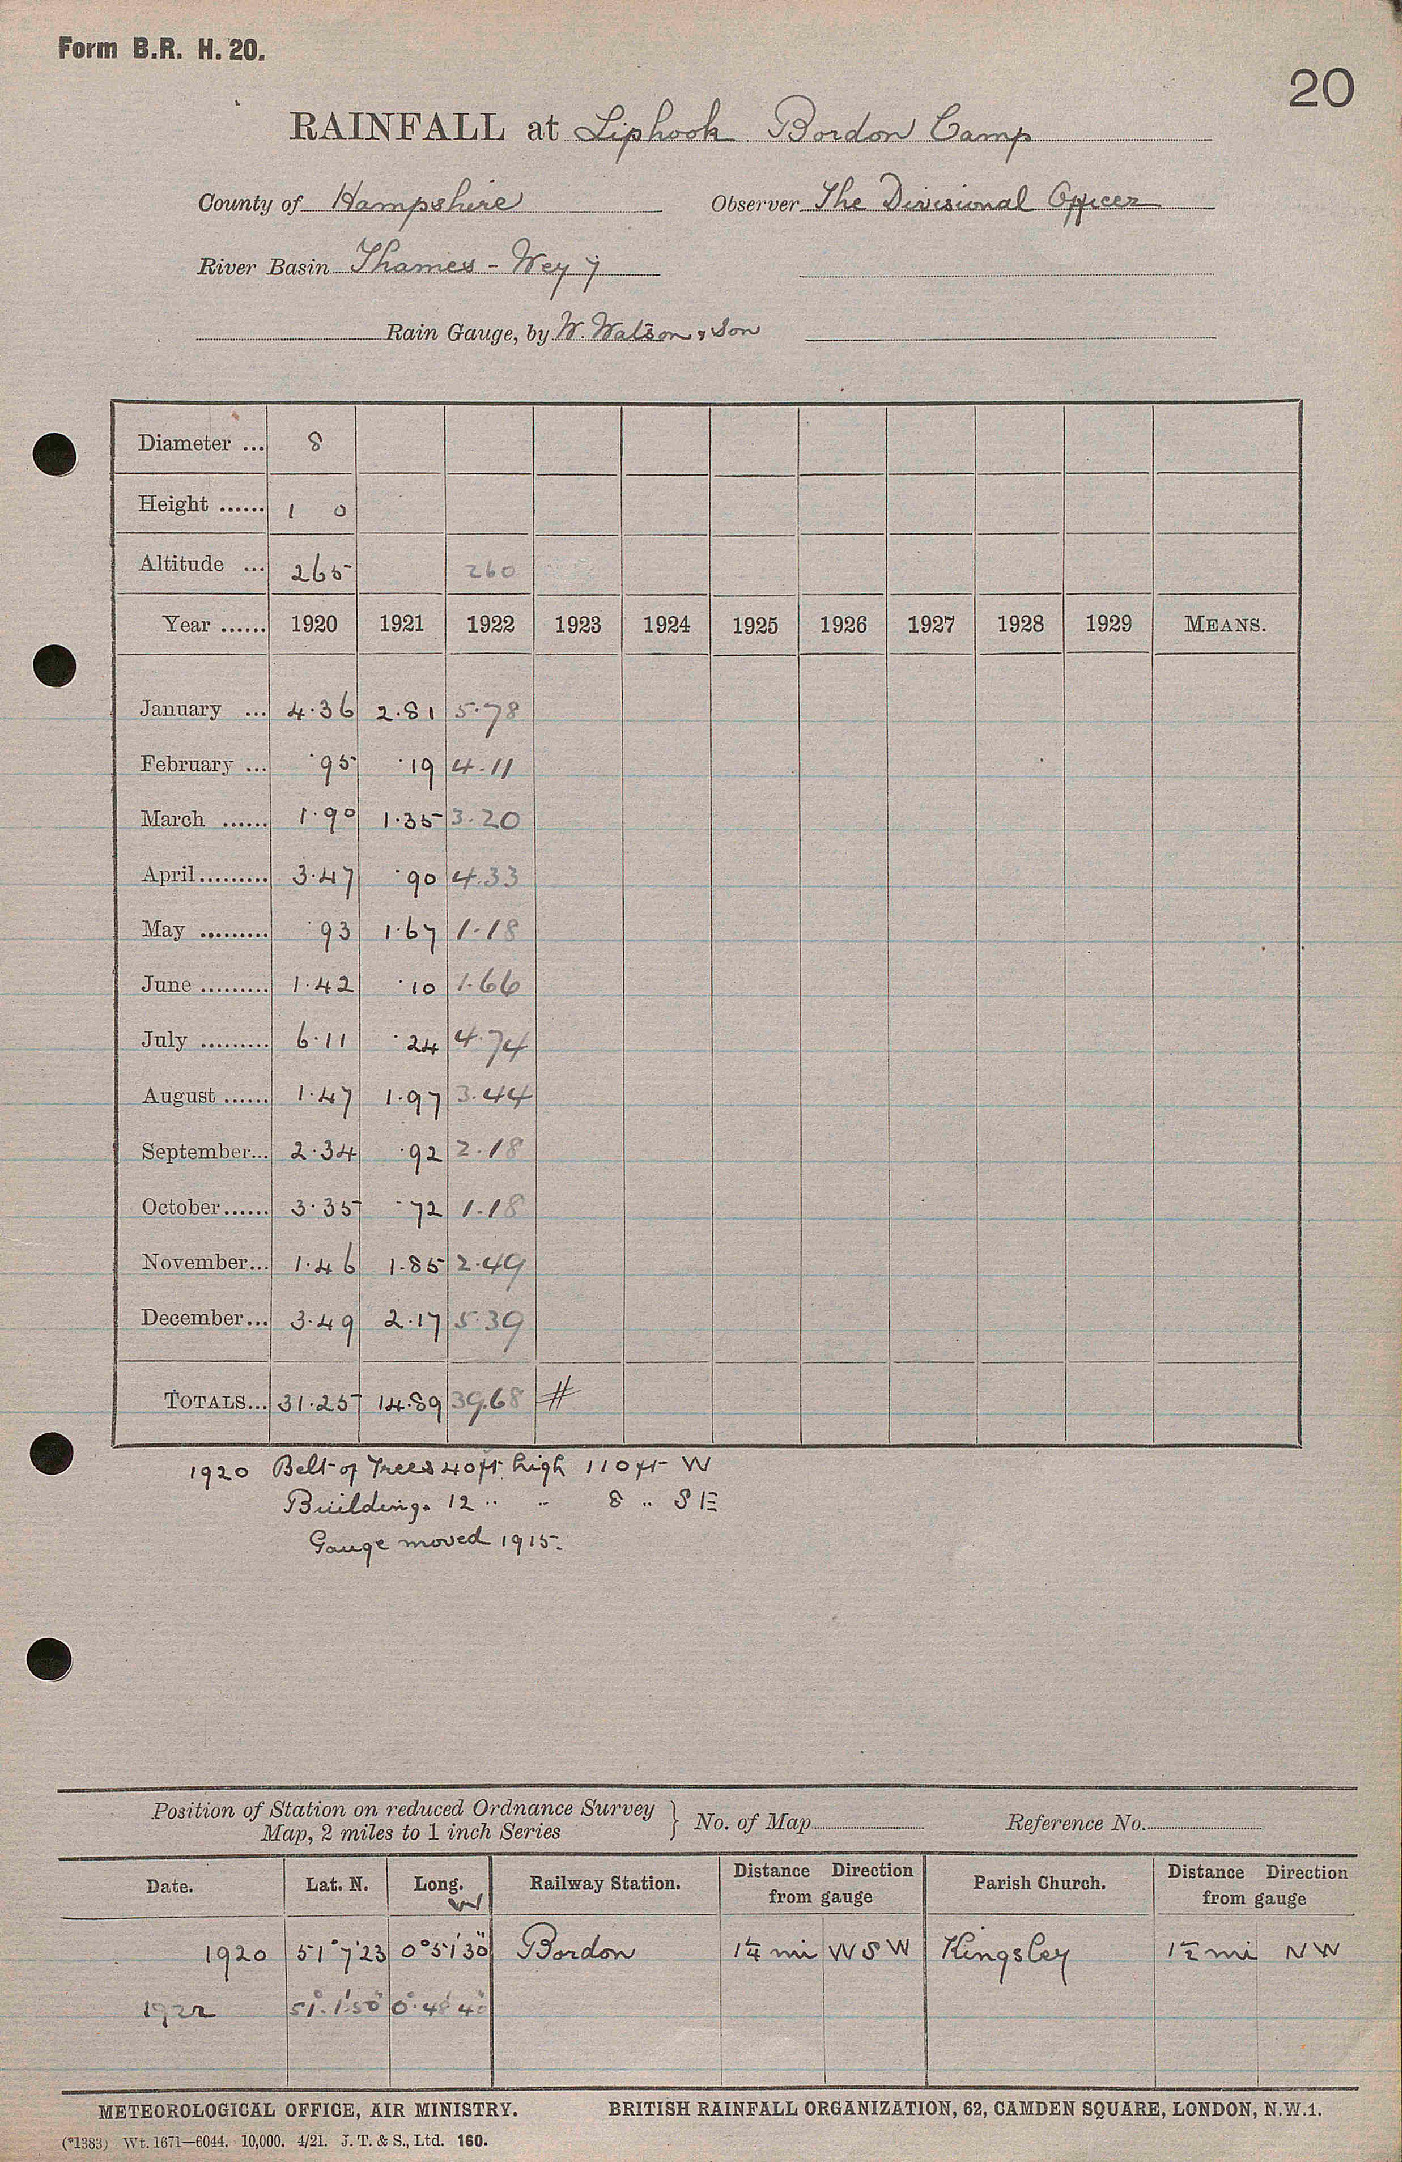 Form B.R. H. 20.
20
RAINFALL at Liphook Bordon Camp
County of Hampshire Observer The Divisional Officer
River Basin Thames - Wey
Rain Gauge, by W. Watson & Son
Diameter ... 8
Height ...... 1 0
Altitude ... 265 260
Year ...... 1920 1921 1922 1923 1924 1925 1926 1927 1928 1929 MEANS.
January ... 4.36 2.81 5.78
February ... .95 .19 4.11
March ...... 1.90 1.35 3.20
April......... 3.47 .90 4.33
May ......... .93 1.67 1.18
June ......... 1.42 .10 1.66
July ......... 6.11 .24 4.74
August ...... 1.47 1.97 3.44
September... 2.34 .92 2.18
October...... 3.35 .72 1.18
November... 1.46 1.85 2.49
December... 3.49 2.17 5.39
TOTALS... 31.25 14.89 39.68 #
1920 Belt of Trees 40 ft. high 110 ft W
Building. 12 .. .. 8 .. SE
Gauge moved 1915.
Position of Station on reduced Ordnance Survey
Map, 2 miles to 1 inch Series } No. of Map Reference No.
Date. Lat. N. Long. W Railway Station. Distance Direction from gauge Parish Church. Distance Direction from gauge
1920 51° 7' 23 0° 51' 30" Bordon 1¼ mi WSW Kingsley 1½ mi NW
1922 51° 1' 50" 0° 48' 40"
METEOROLOGICAL OFFICE, AIR MINISTRY. BRITISH RAINFALL ORGANIZATION, 62, CAMDEN SQUARE, LONDON, N.W.1.
(*1383) Wt. 1671—6044. 10,000. 4/21. J. T. & S., Ltd. 160.